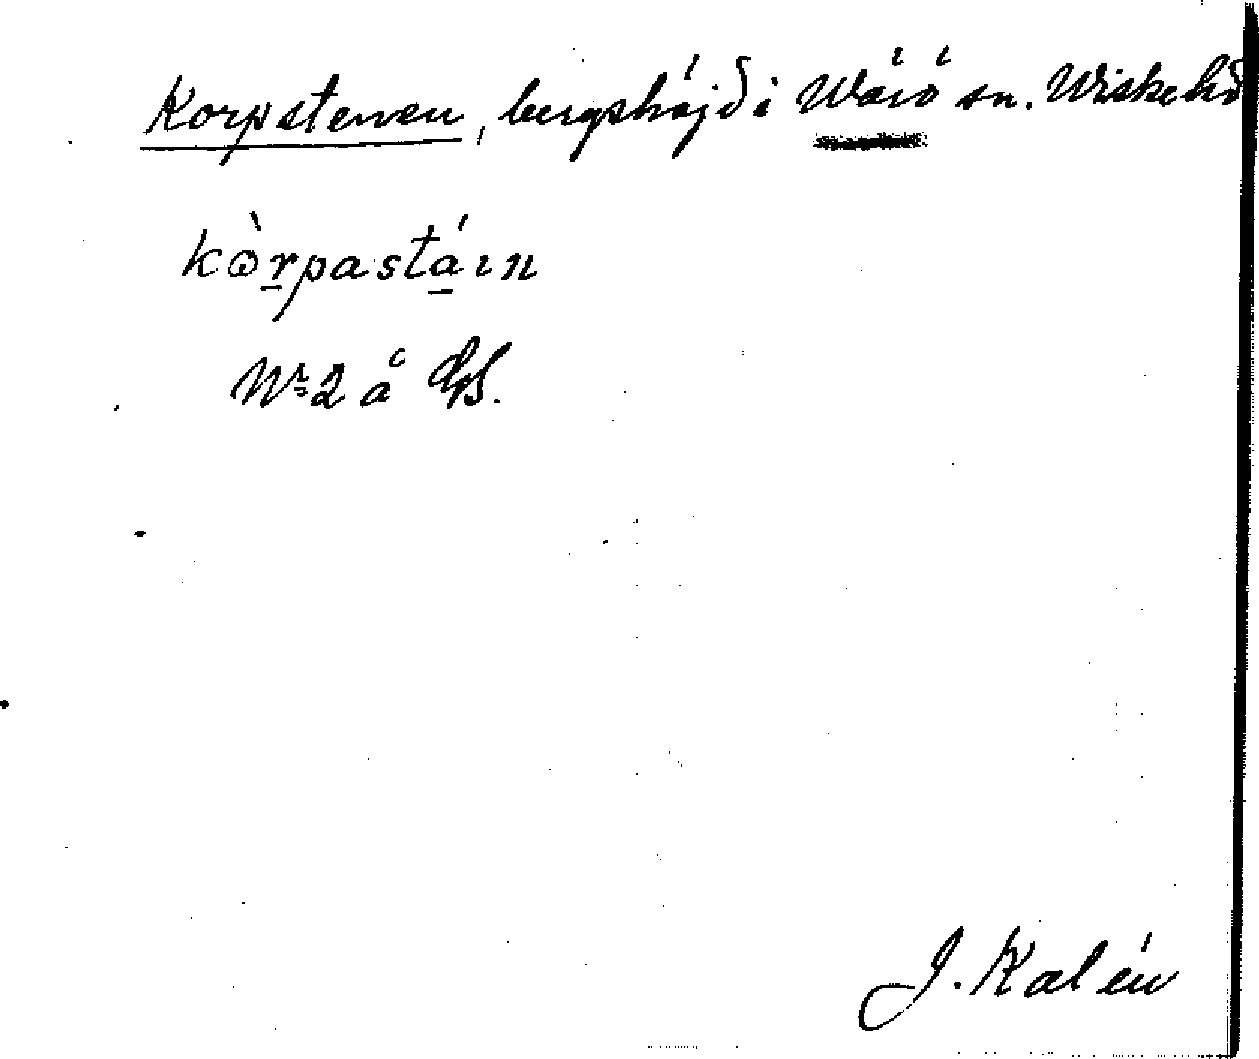 Korpstenen, bergshöjd i Wärö sn. Wiske hd
kòrpastáın
Nr 2 å
J. Kalén